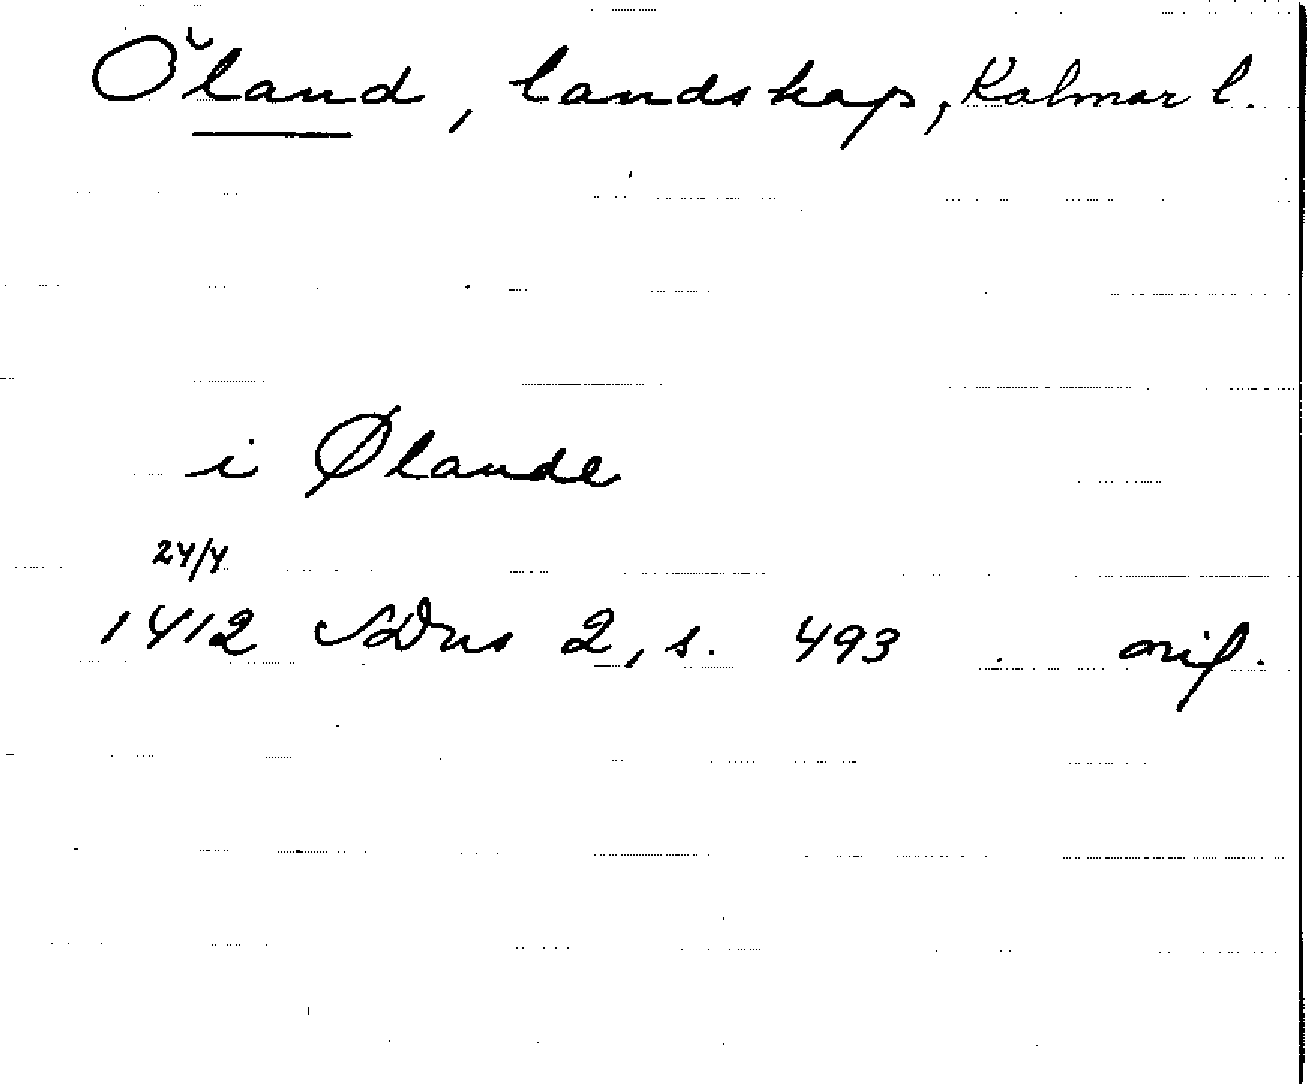 Öland, landskap, Kalmar l.
i Ølande
24/4
1412 SDns 2, s. 493 orig.